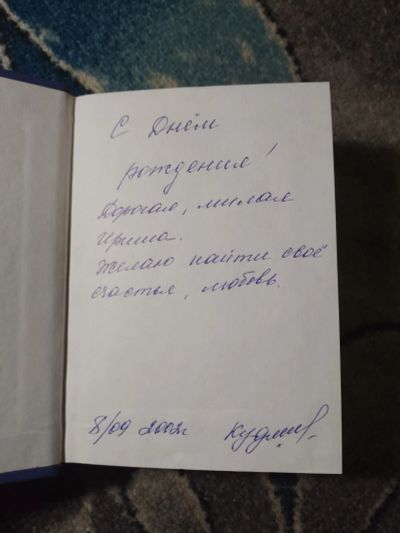 С Днём
рождения!
Дорогая, милая
Ириша.
Желаю найти своё
счастья, любовь.
8/09 2002г